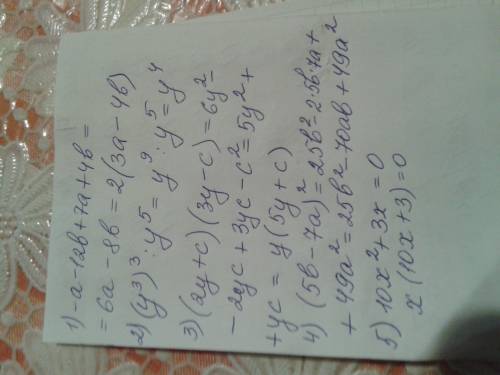 1) -a-12b+7a+4b=
= 6a - 8b = 2(3a - 4b)
2) (y³)³ : y⁵ = y⁹ : y⁵ = y⁴
3) (2y+c)(3y-c) = 6y²-
- 2yc + 3yc - c² = 5y² +
+ yc = y(5y+c)
4) (5b-7a)² = 25b² - 2·5b·7a +
+ 49a² = 25b² - 70ab + 49a²
5) 10x² + 3x = 0
x(10x+3) = 0